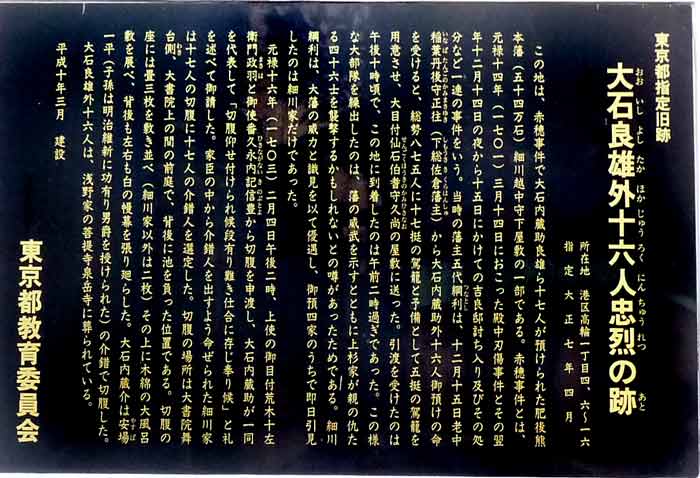 東京都指定旧跡
大石良雄外十六人忠烈の跡
おお いし よし たか ほか じゅう ろく にん ちゅう れつ あと
所在地 港区高輪一丁目四、六〜一六
指定 大正七年四月
この地は、赤穂事件で大石内蔵助良雄ら十七人が預けられた肥後熊
本藩（五十四万石）細川越中守下屋敷の一部である。赤穂事件とは、
元禄十四年（一七〇一）三月十四日におこった殿中刃傷事件とその翌
年十二月十四日の夜から十五日にかけての吉良邸討ち入り及びその処
分など一連の事件をいう。当時の藩主五代綱利は、十二月十五日老中
稲葉丹後守正往（下総佐倉藩主）から大石内蔵助外十六人御預けの命
を受けると、総勢八七五人に十七挺の駕籠と予備として五挺の駕籠を
用意させ、大目付仙石伯耆守久尚の屋敷に送った。引渡を受けたのは
午後十時頃で、この地に到着したのは午前二時過ぎであった。この様
な大部隊を繰出したのは、藩の威武を示すとともに上杉家が親の仇た
る四十六士を襲撃するかもしれないとの噂があったためである。細川
綱利は、大藩の威力と識見を以て優遇し、御預四家のうちで即日引見
したのは細川家だけであった。
元禄十六年（一七〇三）二月四日午後二時、上使の御目付荒木十左
衛門政羽と御使番久永内記信豊から切腹を申渡し、大石内蔵助が一同
を代表して「切腹仰せ付けられ候段有り難き仕合に存じ奉り候」と礼
を述べて御請した。家臣の中から介錯人を出すよう命ぜられた細川家
は十七人の切腹に十七人の介錯人を選定した。切腹の場所は大書院舞
台側、大書院上の間の前庭で、背後に池を負った位置である。切腹の
座には畳三枚を敷き並べ（細川家以外は二枚）その上に木綿の大風呂
敷を展べ、背後も左右も白の幔幕を張り廻らした。大石内蔵介は安場
一平（子孫は明治維新に功有り男爵を授けられた）の介錯で切腹した。
大石良雄外十六人は、浅野家の菩提寺泉岳寺に葬られている。
平成十年三月 建設
東京都教育委員会